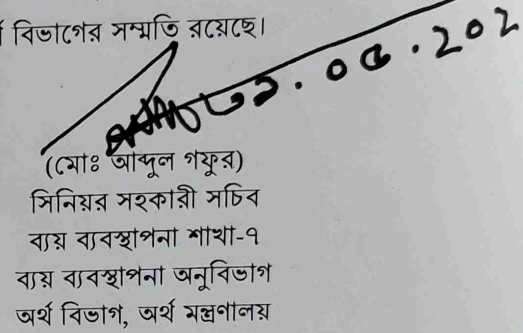 বিভাগের সম্মতি রয়েছে।
৩১.০৫.২০২
(মোঃ আব্দুল গফুর)
সিনিয়র সহকারী সচিব
ব্যয় ব্যবস্থাপনা শাখা-৭
ব্যয় ব্যবস্থাপনা অনুবিভাগ
অর্থ বিভাগ, অর্থ মন্ত্রণালয়